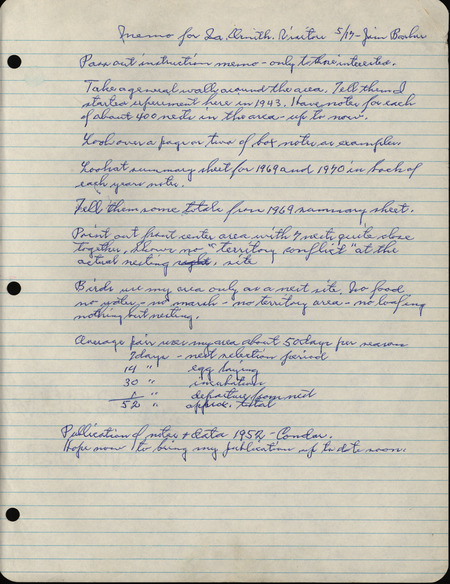 Memo for La. Ornith. Visitors 5/17 - Jim
Pass out instruction memo - only to those interested.
Take a general walk around the area. Tell them I
started experiment here in 1943. Have notes for each
of about 400 nests in the area up to now.
Look over a page or two of box notes as examples.
Look at summary sheet for 1969 and 1970 in back of
each years notes.
Tell them some totals from 1969 summary sheet.
Point out front center area with 7 nests quite close
together, shows no "territory conflict" at the
actual nesting site
Birds use my area only as a nest site. No food
no water - no marsh - no territory area - no loafing
nothing but nesting.
Average pair uses my area about 50 days per season
7 days - nest selection period
14 " egg laying
30 " incubation
1 " departure from nest
52 " approx. total
Publication of notes & data 1952 - Condor.
Hope now to bring my publication up to date soon.